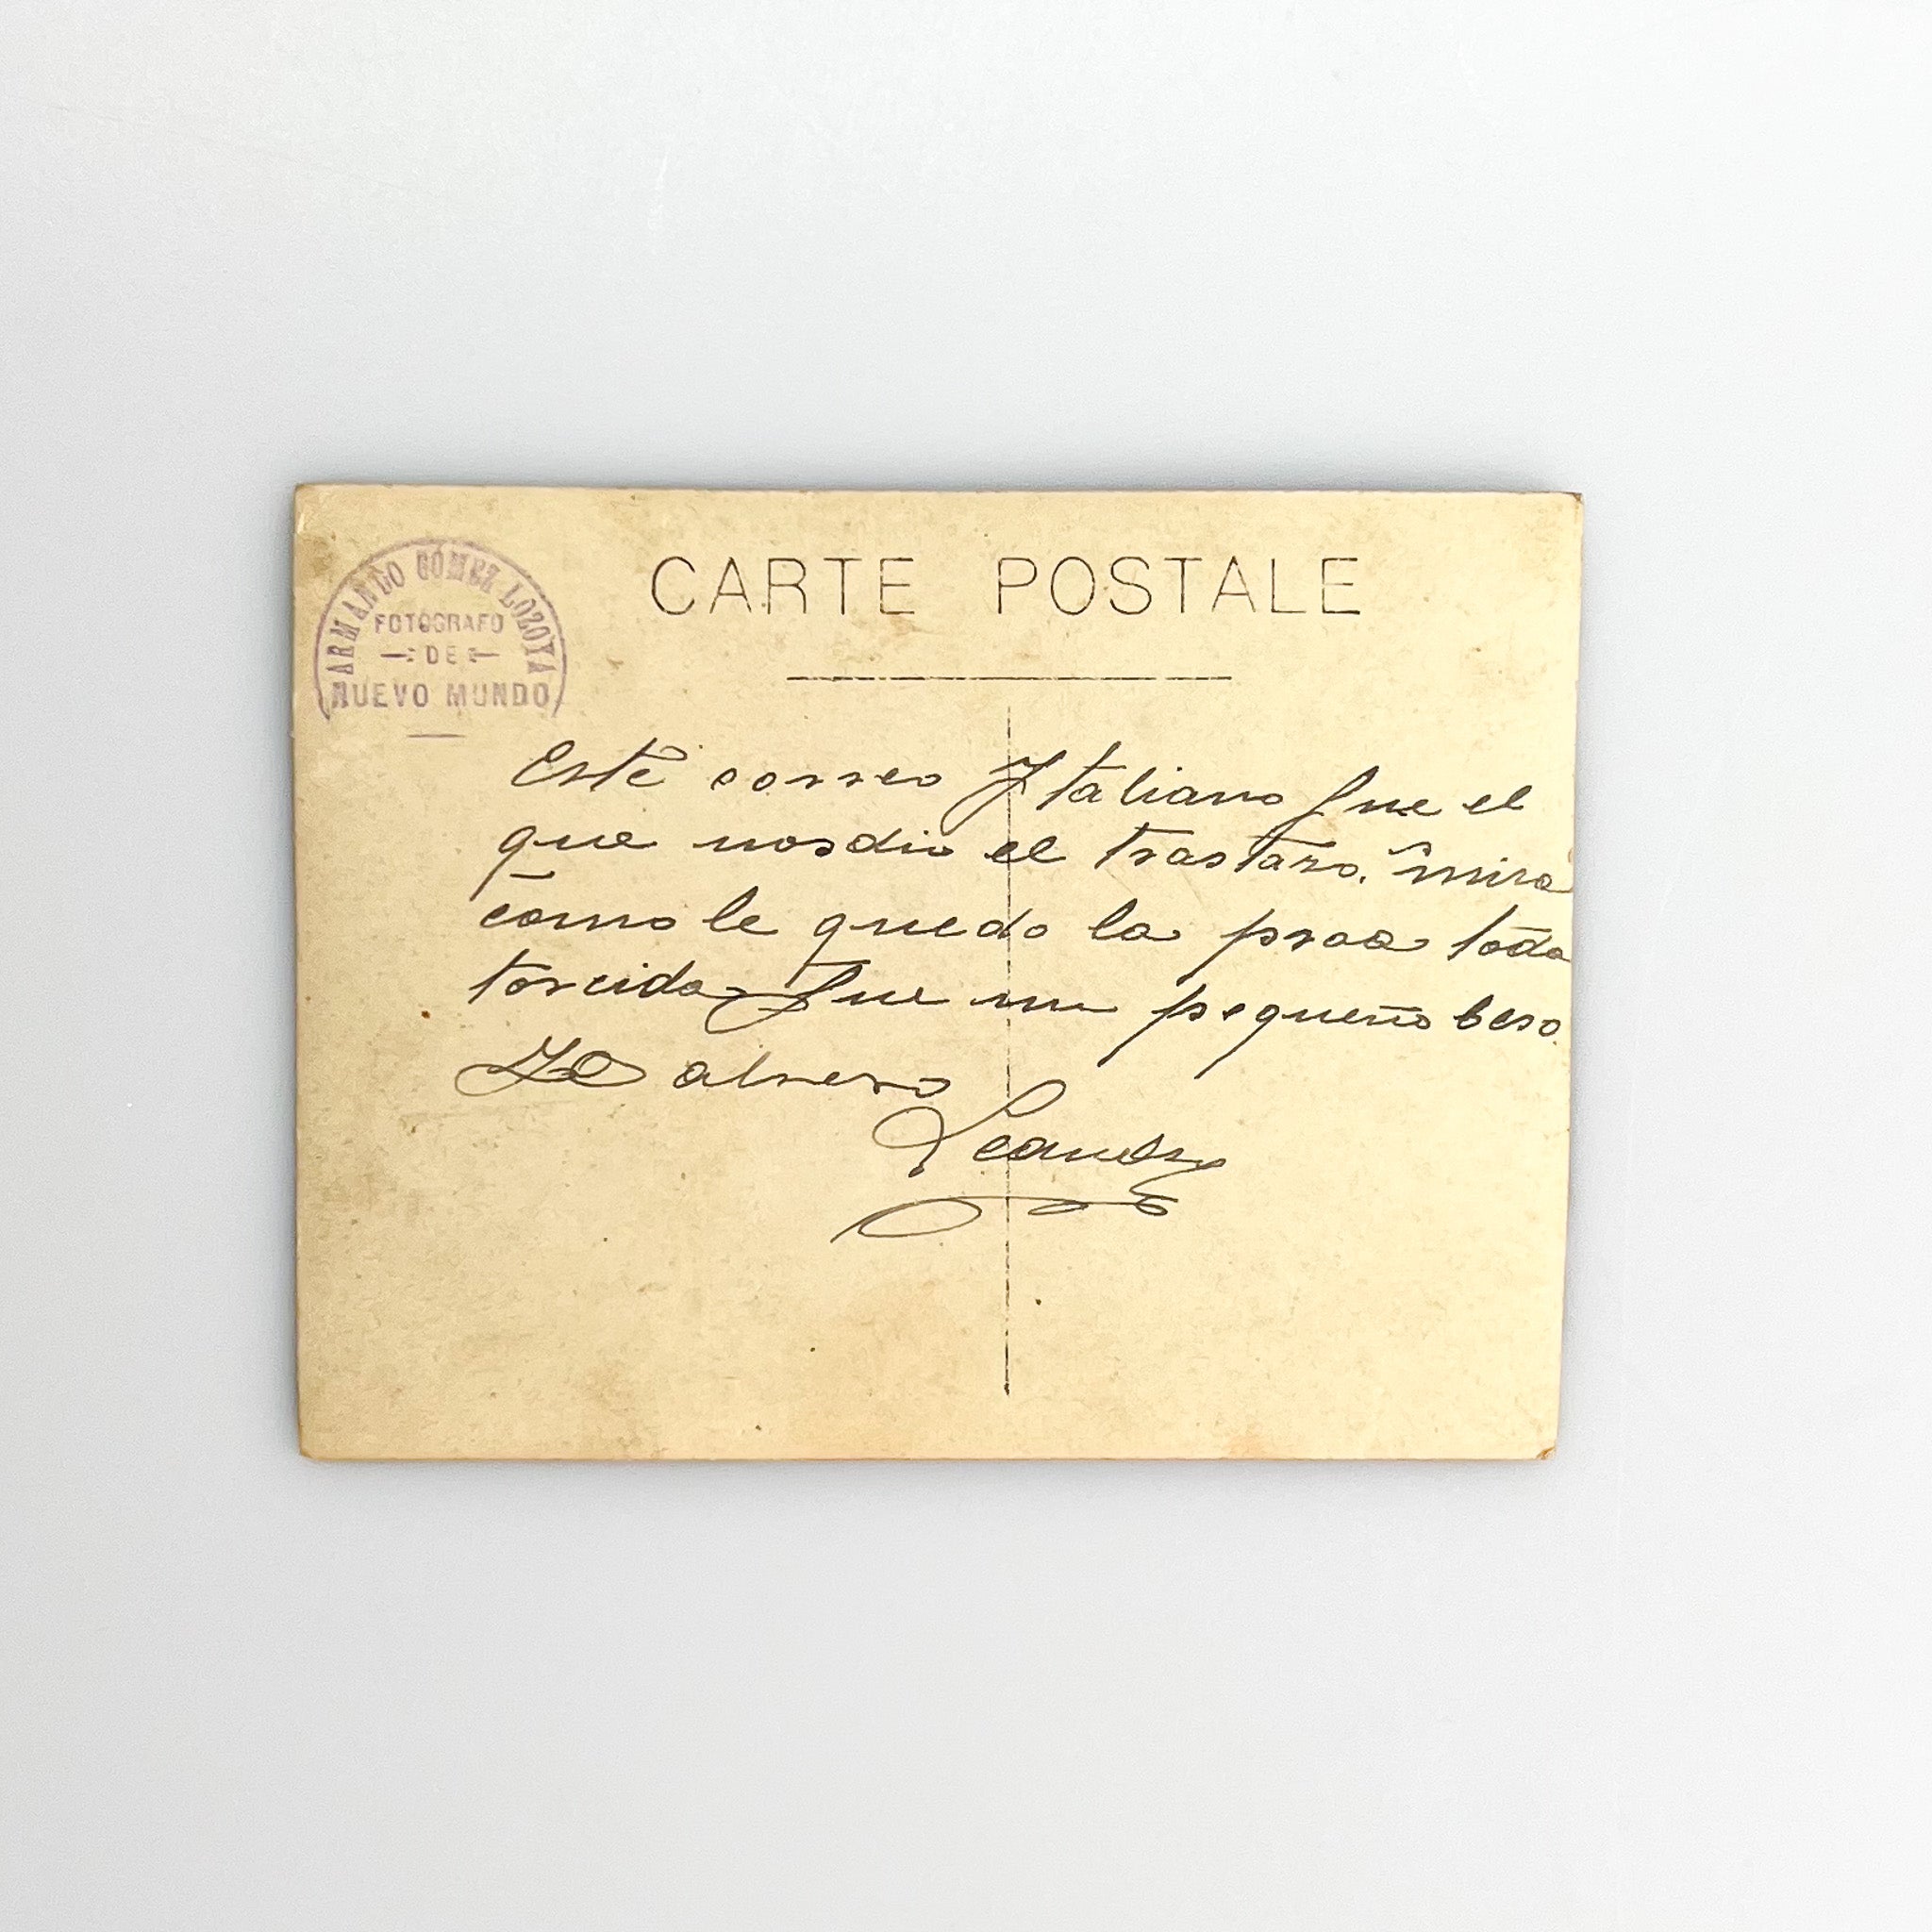 ARMANDO GÓMEZ LOZOYA
FOTOGRAFO
DE
NUEVO MUNDO
CARTE POSTALE
Este correo Italiano fue el
que nos dio el trastazo. mira
como le quedo la proa toda
torcida fue un pequeño beso.
Te abrero
Leandro